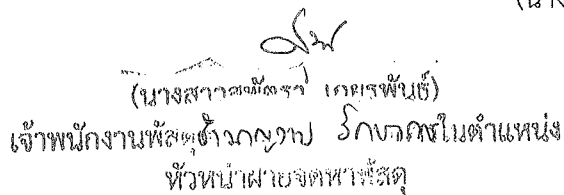 (นาง
(นางสาวสุพัตรา เกษรพันธ์)
เจ้าพนักงานพัสดุชำนาญงาน รักษาการในตำแหน่ง
หัวหน้าฝ่ายจัดหาพัสดุ